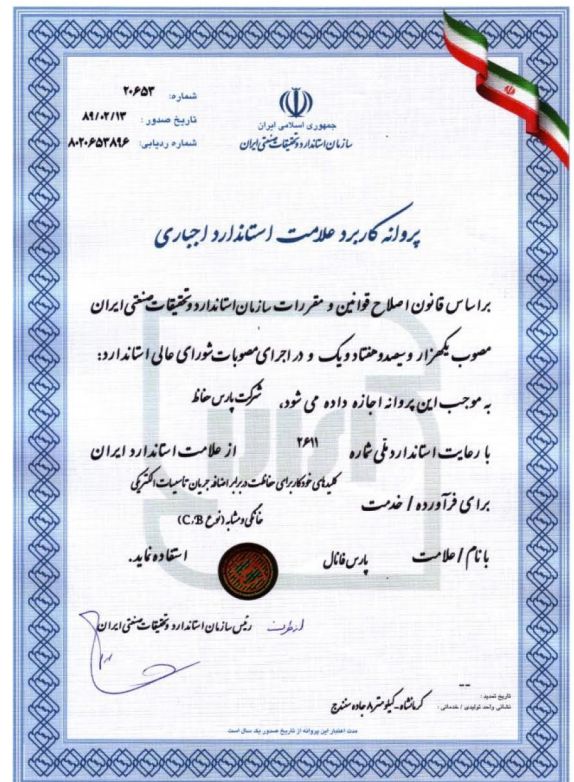 شماره: ۲۰۶۵۳
تاریخ صدور: ۸۹/۰۲/۱۳
شماره ردیابی: ۸۰۲۰۶۵۳۸۹۶
جمهوری اسلامی ایران
سازمان استاندارد و تحقیقات صنعتی ایران
پروانه کاربرد علامت استاندارد اجباری
براساس قانون اصلاح قوانین و مقررات سازمان استاندارد و تحقیقات صنعتی ایران
مصوب یکهزار و سیصد و هفتاد و یک و در اجرای مصوبات شورای عالی استاندارد:
به موجب این پروانه اجازه داده می شود، شرکت پارس حفاظ
با رعایت استاندارد ملّی شماره ۲۶۱۱ از علامت استاندارد ایران
برای فرآورده / خدمت کلیدهای خودکار برای حفاظت در برابر اضافه جریان تاسیسات الکتریکی
خانگی و مشابه (نوع C،B)
با نام / علامت پارس فانال استفاده نماید.
از طرف رئیس سازمان استاندارد و تحقیقات صنعتی ایران
تاریخ تمدید: --
نشانی واحد تولیدی / خدماتی: کرمانشاه - کیلومتر ۸ جاده سنندج
مدت اعتبار این پروانه از تاریخ صدور یک سال است